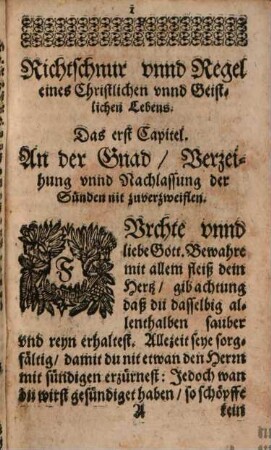 1
Richtschnur vnnd Regel
eines Christlichen vnnd Geist-
lichen Lebens.
Das erst Capitel.
An der Gnad / Verzei-
hung vnnd Nachlassung der
Sünden nit zuverzweiflen.
FUrchte vnnd
liebe Gott. Bewahre
mit allem fleiß dein
Hertz / gib achtung
daß du dasselbig al-
lenthalben sauber
vnd reyn erhaltest. Allezeit seye sorg-
fältig / damit du nit etwan den Herrn
mit sündigen erzürnest: Jedoch wan
du wirst gesündiget haben / so schöpffe
A kein